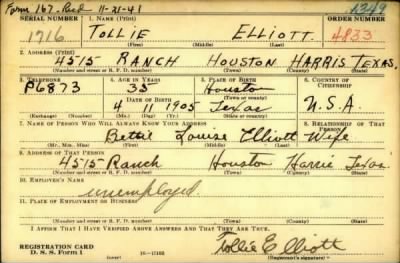 Form 167. Recd 11-21-41 1349
SERIAL NUMBER 1. Name (Print) ORDER NUMBER
1716 TOLLIE ELLIOTT 4833
(First) (Middle) (Last)
2. Address (Print)
4515 RANCH HOUSTON HARRIS TEXAS,
(Number and street or R. F. D. number) (Town) (County) (State)
3. Telephone 4. Age in Years 5. Place of Birth 6. Country of Citizenship
P6873 35 Houston
Date of Birth (Town or county)
4 11 1905 Texas U.S.A.
(Exchange) (Number) (Mo.) (Day) (Yr.) (State or country)
7. Name of Person Who Will Always Know Your Address 8. Relationship of That Person
Bettie Louise Elliott Wife
(Mr., Mrs., Miss) (First) (Middle) (Last)
9. Address of That Person
4515 Ranch Houston Harris Texas
(Number and street or R. F. D. number) (Town) (County) (State)
10. Employer's Name
unemployed.
11. Place of Employment or Business
(Number and street or R. F. D. number) (Town) (County) (State)
I Affirm That I Have Verified Above Answers and That They Are True.
REGISTRATION CARD
D. S. S. Form 1 16—17105 Tollie Elliott
(Registrant's signature)